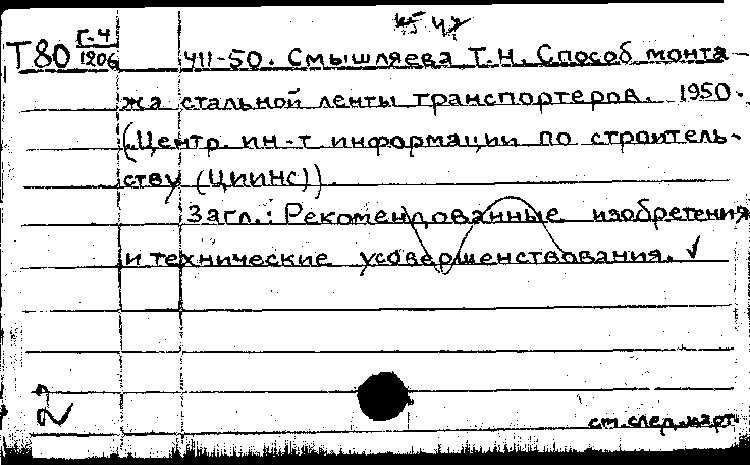 Т80 Г-4
1206
411-50. Смышляева Т.Н. Способ монта-
жа стальной ленты транспортеров. 1950.
(Центр. ин-т информации по строитель-
ству (ЦИИНС)).
Загл.: Рекомендованные изобретения
и технические усовершенствования.
см. след. карт.